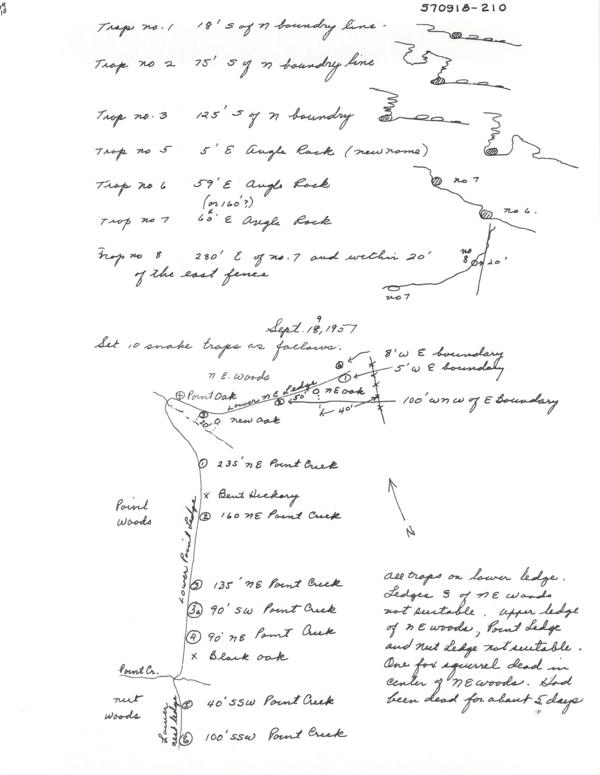 570918-210
Trap no. 1 18' S of N boundry line.
Trap no 2 75' S of N boundry line
Trap no. 3 125' S of N boundry
Trap no 5 5' E Angle Rock (new name)
Trap no 6 59' E Angle Rock
(or 160'?)
Trap no 7 60' E Angle Rock
no 7
no 6.
Trap no 8 280' E of no. 7 and within 20'
of the east fence
no 8
20'
no 7
9
Sept. 18, 1957
Set 10 snake traps as follows:
8' W E boundary
5' W E boundary
N.E. Woods
Lower NE Ledge
Point Oak
50'
NE Oak
40'
100' WNW of E Boundary
New Oak
1 235' NE Point Creek
x Bent Hickory
Point
Woods
2 160 NE Point Creek
Lower Point Ledge
N
135' NE Point Creek
3a 90' SW Point Creek
4 90' NE Point Creek
x Black oak
Point Cr.
Nut
Woods
Lower
nut ledge
40' SSW Point Creek
6 100' SSW Point Creek
All traps on lower ledge.
Ledges S of NE woods
not suitable. Upper ledge
of NE woods, Point Ledge
and Nut Ledge not suitable.
One fox squirrel dead in
center of NE woods. Had
been dead for about 5 days